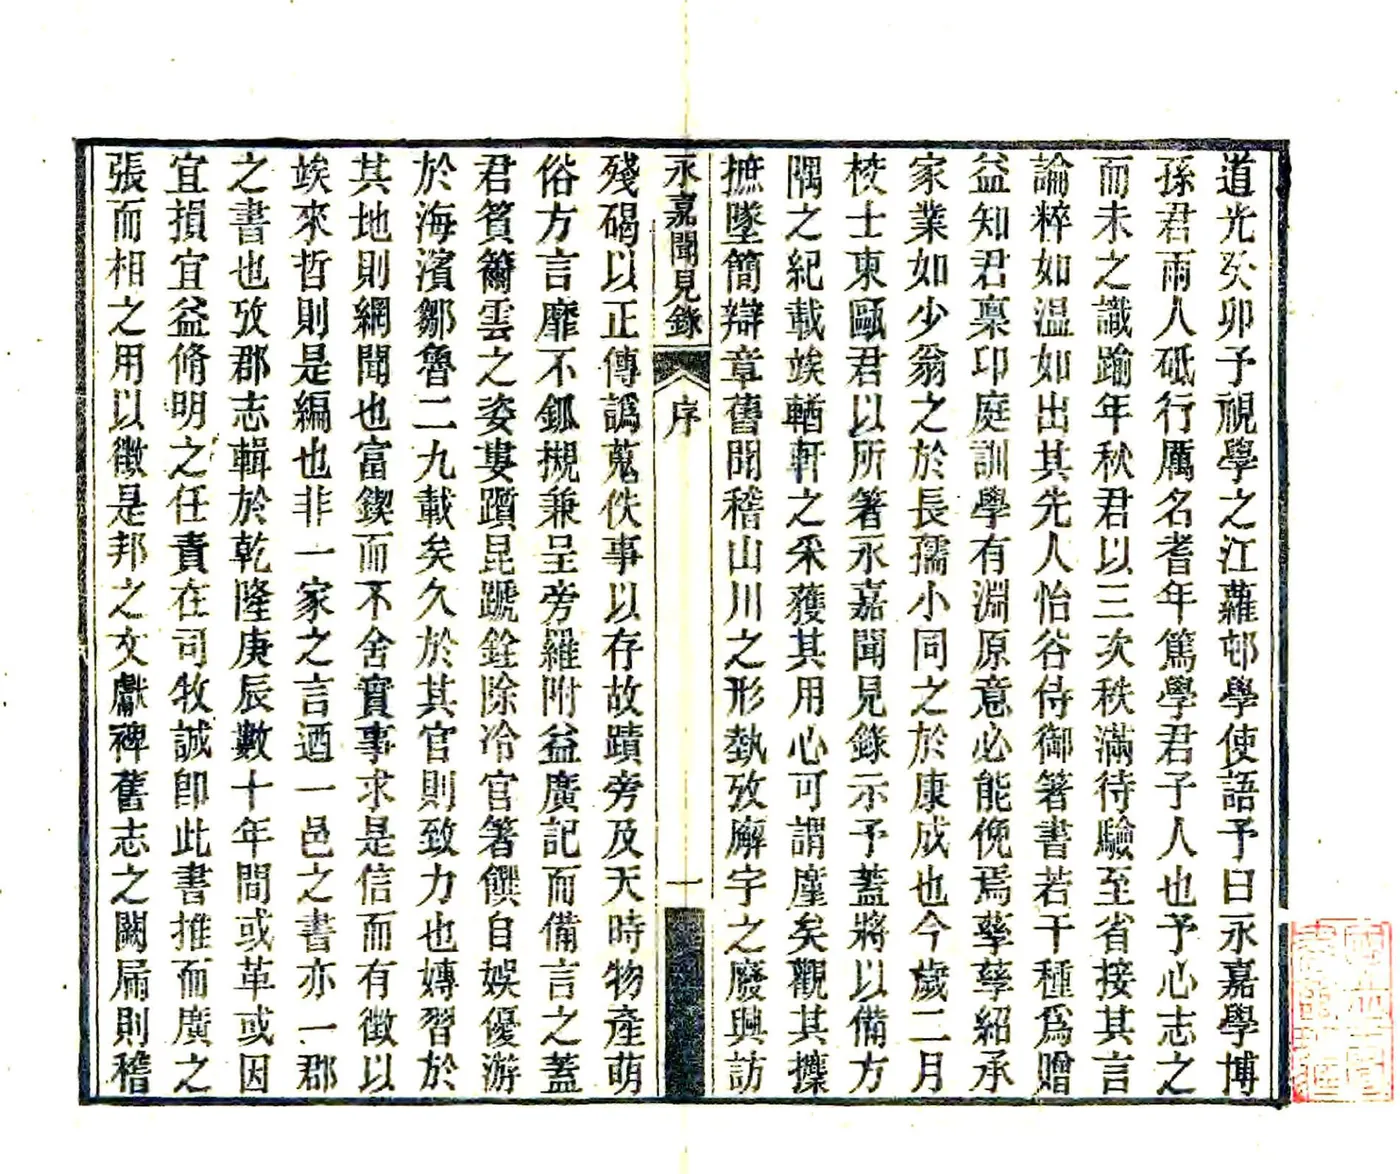 道光癸卯予視學之江蘿邨學使語予曰永嘉學博
孫君雨人砥行厲名耆年篤學君子人也予心志之
而未之識踰年秋君以三次秩滿待驗至省接其言
論粹如温如出其先人怡谷侍御箸書若干種爲贈
益知君稟卬庭訓學有淵原意必能俛焉孳孳紹承
家業如少翁之於長孺小同之於康成也今歲二月
校士東甌君以所箸永嘉聞見錄示予蓋將以備方
隅之紀載竢輶軒之采獲其用心可謂廑矣觀其攗
摭墜簡辯章舊聞稽山川之形埶攷廨宇之廢興訪
永嘉聞見錄 序 一
殘碣以正傳譌蒐佚事以存故蹟旁及天時物產萌
俗方言靡不釽摫兼呈旁羅附益廣記而備言之蓋
君負籋雲之姿婁躓昆蹏銓除冷官箸僎自娛優游
於海濱鄒魯二九載矣久於其官則致力也專習於
其地則網聞也富鍥而不舍實事求是信而有徵以
竢來哲則是編也非一家之言迺一邑之書亦一郡
之書也攷郡志輯於乾隆庚辰數十年間或革或因
宜損宜益脩明之任責在司牧誠卽此書推而廣之
張而相之用以徵是邦之文獻裨舊志之闕扁則稽